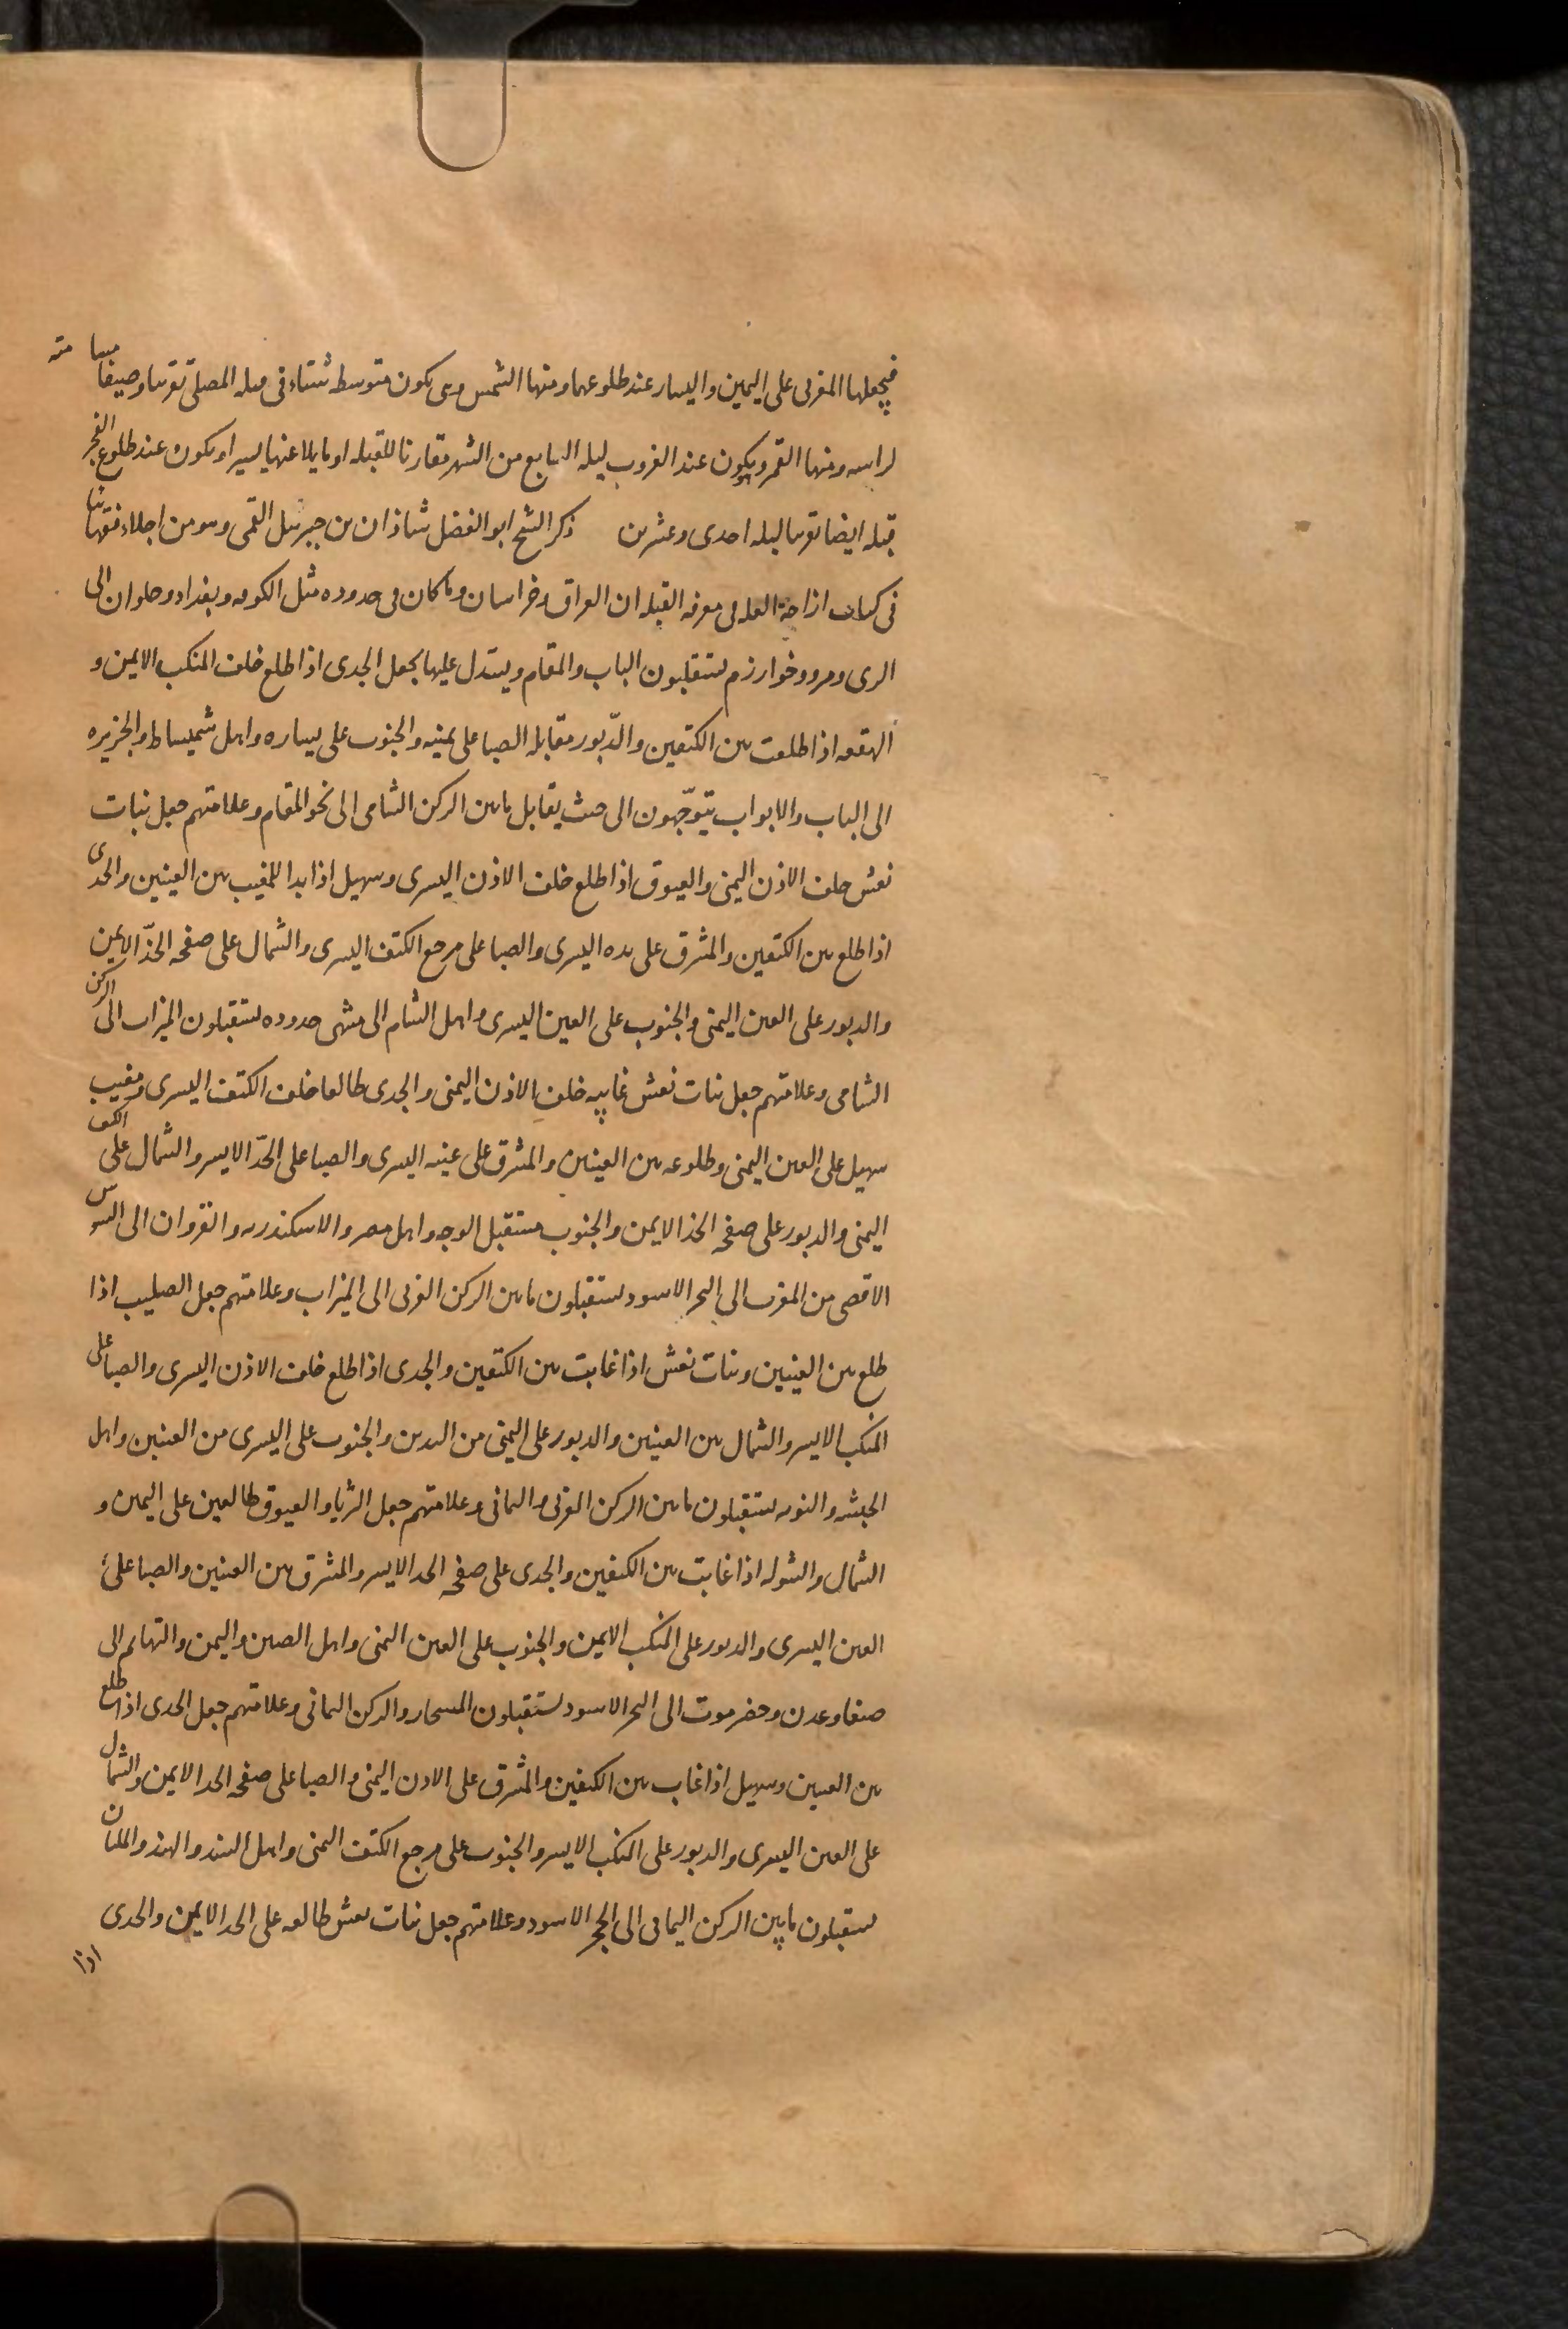 فيجعلها المغربى على اليمين واليسار عند طلوعهما ومنها الشمس وهى يكون متوسطه شتاء فى قبله المصلى تقريبا وصيفا مسامته
لراسه ومنها القمر ويكون عند الغروب ليله السابع من الشهر مقارنا للقبله او مايلا عنها يسيرا ويكون عند طلوع الفجر
قبله ايضا تقريبا ليله احدى وعشرين ذكر الشيخ ابو الفضل شاذان بن جبرئيل القمى وهو من اجلاء فقهائنا
فى كتاب ازاحة العله فى معرفه القبله ان العراق وخراسان وما كان فى حدوده مثل الكوفه وبغداد وحلوان الى
الرى ومرو وخوارزم يستقبلون الباب والمقام ويستدل عليها بجعل الجدى اذا طلع خلف المنكب الايمن و
الهقعه اذا طلعت بين الكتفين والدّبور مقابله الصبا على يمينه والجنوب على يساره واهل شميساط والجزيره
الى الباب والابواب يتوّجهون الى حيث يقابل ما بين الركن الشامى الى نحو المقام وعلامتهم جعل بنات
نعش خلف الاذن اليمنى والعيوق اذا طلع خلف الاذن اليسرى وسهيل اذا بدا للمغيب بين العينين والجدى
اذا طلع بين الكتفين والمشرق على يده اليسرى والصبا على مرجع الكتف اليسرى والشمال على صفحه الخدّ الايمن
والدبور على العين اليمنى والجنوب على العين اليسرى واهل الشام الى منتهى حدوده يستقبلون الميزاب الى الركن
الشامى وعلامتهم جعل بنات نعش غاييه خلف الاذن اليمنى والجدى طالعا خلف الكتف اليسرى ومغيب
سهيل على العين اليمنى وطلوعه بين العينين والمشرق على عينه اليسرى والصبا على الخدّ الايسر والشمال على الكتف
اليمنى والدبور على صفحه الخد الايمن والجنوب مستقبل الوجه واهل مصر والاسكندريه والقروان الى السوس
الاقصى من المغرب الى البحر الاسود يستقبلون ما بين الركن الغربى الى الميزاب وعلامتهم جعل الصليب اذا
طلع بين العينين وبنات نعش اذا غابت بين الكتفين والجدى اذا طلع خلف الاذن اليسرى والصبا على
المنكب الايسر والشمال بين العينين والدبور على اليمنى من اليدين والجنوب على اليسرى من العينين واهل
الحبشه والنوبه يستقبلون ما بين الركن الغربى واليمانى وعلامتهم جعل الثريا والعيوق طالعين على اليمين و
الشمال والشوله اذا غابت بين الكتفين والجدى على صفحه الخد الايسر والمشرق بين العينين والصبا على
العين اليسرى والدبور على المنكب الايمن والجنوب على العين اليمنى واهل الصين واليمن والتهايم الى
صنعا وعدن وحضرموت الى البحر الاسود يستقبلون المستجار والركن اليمانى وعلامتهم جعل الجدى اذا طلع
بين العينين وسهيل اذا غاب بين الكتفين والمشرق على الاذن اليمنى والصبا على صفحه الخد الايمن والشمال
على العين اليسرى والدبور على المنكب الايسر والجنوب على مرجع الكتف اليمنى واهل السند والهند والملتان
يستقبلون ما بين الركن اليمانى الى الحجر الاسود وعلامتهم جعل بنات نعش طالعه على الخد الايمن والجدى
اذا